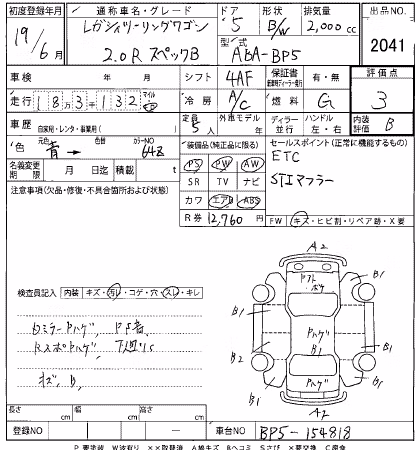 初度登録年月 通称車名・グレード ドア 形状 排気量 出品NO.
19/6月 レガシィツーリングワゴン 5 B/W 2,000cc
2.0R スペックB 型式 ABA-BP5 2041
車検 年 月 シフト 4AF 保証書 有・無 評価点
走行 183千132 マイル 冷房 A/C 燃料 G 3
車歴 自家用・レンタ・事業用( ) 定員 5人 外車モデル 年 ディーラー 並行 ハンドル 左・右 内装評価 B
色 元色 青→ 色替 カラーNO 64Z 装備品(純正品に限る) セールスポイント(正常に機能するもの)
名義変更期限 月 日迄 積載 t PS PW AW ETC
注意事項(欠品・修復・不具合箇所および状態) SR TV ナビ STIマフラー
カワ エアB ABS
R券 12,760円 FW キズ・ヒビ割・リペア跡・X要
A2
検査員記入 内装 キズ・汚レ・コデ・穴・スレ・キレ
B1 B1
B1 B1
Pハゲ
B2 B1 B1
キズ、B、
Pハゲ
B1 B1
A2
長さ cm 幅 cm 高さ cm
登録NO ー 車台NO BP5-154818
P 要塗装 W波有り ××取替済 A線キズ Bヘコミ Sさび ×要交換 C腐食